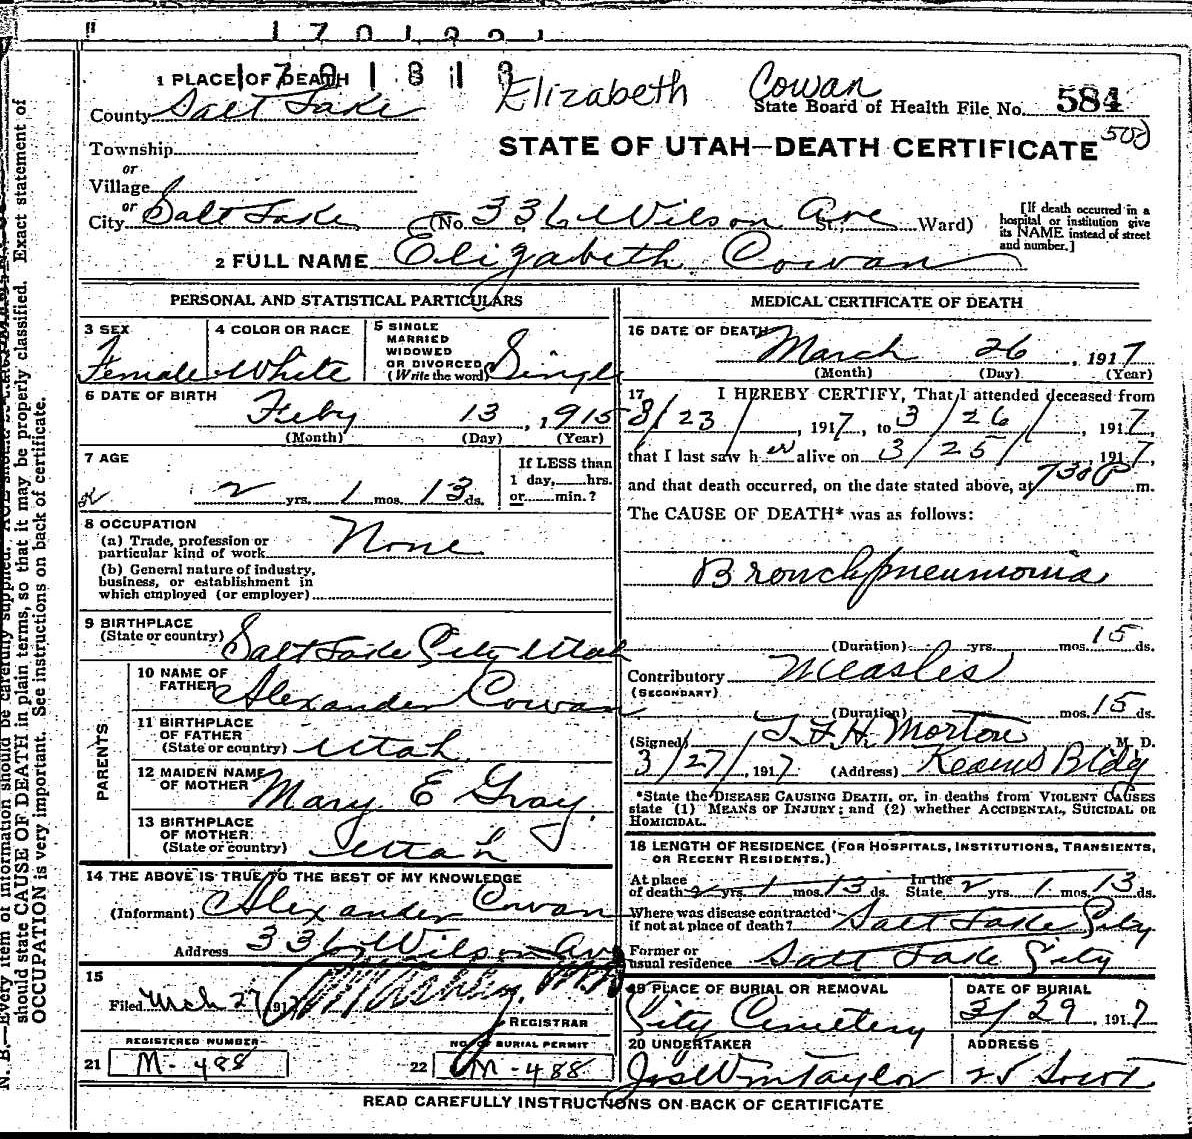 1 7 0 1
1 7 0 1 8 1 8
Elizabeth Cowan
1 PLACE OF DEATH
State Board of Health File No. 584
County Salt Lake
STATE OF UTAH—DEATH CERTIFICATE
Township
or
Village
or
City Salt Lake (No. 336 Wilson Ave St.; Ward)
[If death occurred in a
hospital or institution give
its NAME instead of street
and number.]
2 FULL NAME Elizabeth Cowan
PERSONAL AND STATISTICAL PARTICULARS
3 SEX
Female
4 COLOR OR RACE
White
5 SINGLE
MARRIED
WIDOWED
OR DIVORCED
(Write the word) Single
6 DATE OF BIRTH
Feby 13, 1915
(Month) (Day) (Year)
7 AGE
2 yrs. 1 mos. 13 ds.
If LESS than
1 day, hrs.
or min.?
8 OCCUPATION
(a) Trade, profession or
particular kind of work None
(b) General nature of industry,
business, or establishment in
which employed (or employer)
9 BIRTHPLACE
(State or country) Salt Lake City Utah
PARENTS
10 NAME OF
FATHER Alexander Cowan
11 BIRTHPLACE
OF FATHER
(State or country) Utah
12 MAIDEN NAME
OF MOTHER Mary E Gray.
13 BIRTHPLACE
OF MOTHER
(State or country) Utah
14 THE ABOVE IS TRUE TO THE BEST OF MY KNOWLEDGE
(Informant) Alexander Cowan
Address 336 Wilson Ave
15
Filed Mch 27, 1917
REGISTRAR
REGISTERED NUMBER
21 M-488
NO. OF BURIAL PERMIT
22 M-488
MEDICAL CERTIFICATE OF DEATH
16 DATE OF DEATH
March 26, 1917
(Month) (Day) (Year)
17 I HEREBY CERTIFY, That I attended deceased from
3/23/, 1917, to 3/26/, 1917,
that I last saw h er alive on 3/25/, 1917,
and that death occurred, on the date stated above, at 730P m.
The CAUSE OF DEATH* was as follows:
Bronchpneumonia
(Duration) yrs. mos. 15 ds.
Contributory Measles
(SECONDARY)
(Duration) mos. 15 ds.
(Signed) T. F. H. Morton M. D.
3/27/, 1917 (Address) Kearns Bldg
*State the DISEASE CAUSING DEATH, or, in deaths from VIOLENT CAUSES
state (1) MEANS OF INJURY; and (2) whether ACCIDENTAL, SUICIDAL OR
HOMICIDAL.
18 LENGTH OF RESIDENCE (FOR HOSPITALS, INSTITUTIONS, TRANSIENTS,
OR RECENT RESIDENTS.)
At place
of death 2 yrs. 1 mos. 13 ds. In the
State 2 yrs. 1 mos. 13 ds.
Where was disease contracted
if not at place of death? Salt Lake City
Former or
usual residence Salt Lake City
19 PLACE OF BURIAL OR REMOVAL
City Cemetery
DATE OF BURIAL
3/29, 1917
20 UNDERTAKER
Jos Wm Taylor
ADDRESS
READ CAREFULLY INSTRUCTIONS ON BACK OF CERTIFICATE
N. B.—Every item of information should be carefully supplied.
should state CAUSE OF DEATH in plain terms, so that it may be properly classified. Exact statement of
OCCUPATION is very important. See instructions on back of certificate.